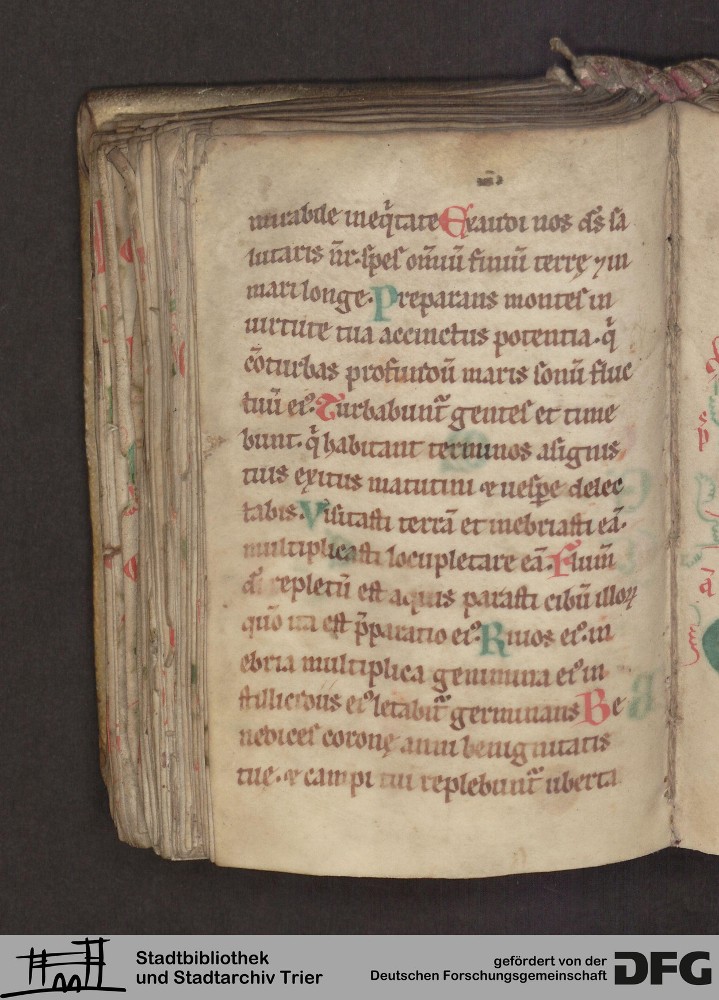 mirabile ineq̄tate Exaudi nos ds̄ sa
lutaris nr̄. spes om̄iū finiū terrę ⁊ in
mari longe. Preparans montes in
uirtute tua accinctus potentia. q̄
cōturbas profundū maris sonū fluc
tuū ei⁹. Turbabunt̄ gentes et time
bunt. q̄ habitant terminos asignis
tuis exitus matutini & uesꝑe delec
tabis. Visitasti terrā et inebriasti eā.
multiplicasti locupletare eā. Flum̄
dī repletū est aquis parasti cibū illoꝝ
quō ita est p̄paratio ei⁹. Riuos ei⁹. in
ebria multiplica genimina ei⁹ in
stillicidiis ei⁹ letabit̄ germinans Be
nedices coronę anni benignitatis
tuę. & campi tui replebunt̄ uberta
Stadtbibliothek
und Stadtarchiv Trier
gefördert von der
Deutschen Forschungsgemeinschaft
DFG